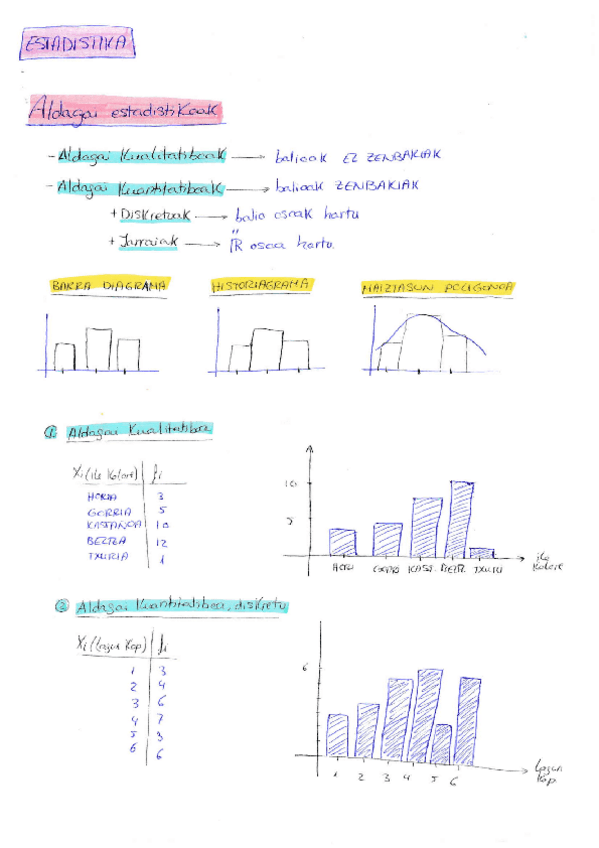 ESTADISTIKA
Aldagai estadistikoak
- Aldagai Kualitatiboak → balioak EZ ZENBAKIAK
- Aldagai Kuantitatiboak → balioak ZENBAKIAK
+ Diskretuak → balio osoak hartu
+ Jarraiak → ℝ osoa hartu.
BARRA DIAGRAMA HISTOGRAMA MAIZTASUN POLIGONOA
① Aldagai Kualitatiboa
xi (ile kolore) fi
HORIA 3
GORRIA 5
KASTAÑOA 10
BELTZA 12
TXURIA 1
10
5
HORI GORRI KAST. BELTZ. TXURI ile kolore
② Aldagai Kuantitatiboa, diskretu
xi (lagun kop) fi
1 3
2 4
3 6
4 7
5 3
6 6
6
1 2 3 4 5 6 lagun kop